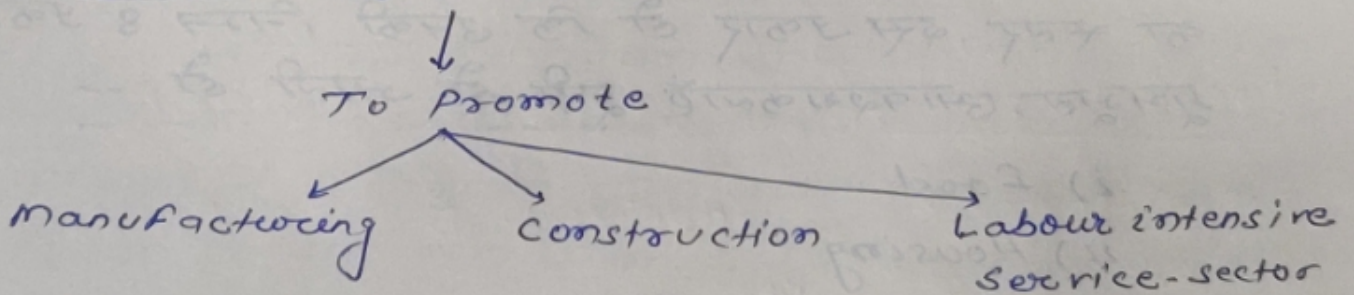 To Promote
Manufacturing Construction Labour intensive
service-sector